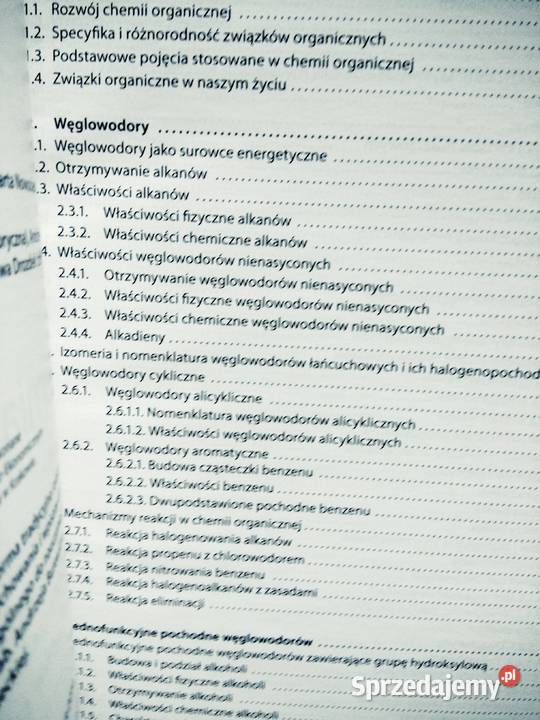 1.1. Rozwój chemii organicznej
1.2. Specyfika i różnorodność związków organicznych
1.3. Podstawowe pojęcia stosowane w chemii organicznej
.4. Związki organiczne w naszym życiu
. Węglowodory
.1. Węglowodory jako surowce energetyczne
.2. Otrzymywanie alkanów
.3. Właściwości alkanów
2.3.1. Właściwości fizyczne alkanów
2.3.2. Właściwości chemiczne alkanów
4. Właściwości węglowodorów nienasyconych
2.4.1. Otrzymywanie węglowodorów nienasyconych
2.4.2. Właściwości fizyczne węglowodorów nienasyconych
2.4.3. Właściwości chemiczne węglowodorów nienasyconych
2.4.4. Alkadieny
. Izomeria i nomenklatura węglowodorów łańcuchowych i ich halogenopochod
. Węglowodory cykliczne
2.6.1. Węglowodory alicykliczne
2.6.1.1. Nomenklatura węglowodorów alicyklicznych
2.6.1.2. Właściwości węglowodorów alicyklicznych
2.6.2. Węglowodory aromatyczne
2.6.2.1. Budowa cząsteczki benzenu
2.6.2.2. Właściwości benzenu
2.6.2.3. Dwupodstawione pochodne benzenu
Mechanizmy reakcji w chemii organicznej
2.7.1. Reakcja halogenowania alkanów
2.7.2. Reakcja propenu z chlorowodorem
2.7.3. Reakcja nitrowania benzenu
2.7.4. Reakcja halogenoalkanów z zasadami
2.7.5. Reakcja eliminacji
ednofunkcyjne pochodne węglowodorów
ednofunkcyjne pochodne węglowodorów zawierające grupę hydroksylową
.1.1. Budowa i podział alkoholi
.1.2. Właściwości fizyczne alkoholi
1.3. Otrzymywanie alkoholi
1.4. Właściwości chemiczne alkoholi
1.5.
Sprzedajemy.pl